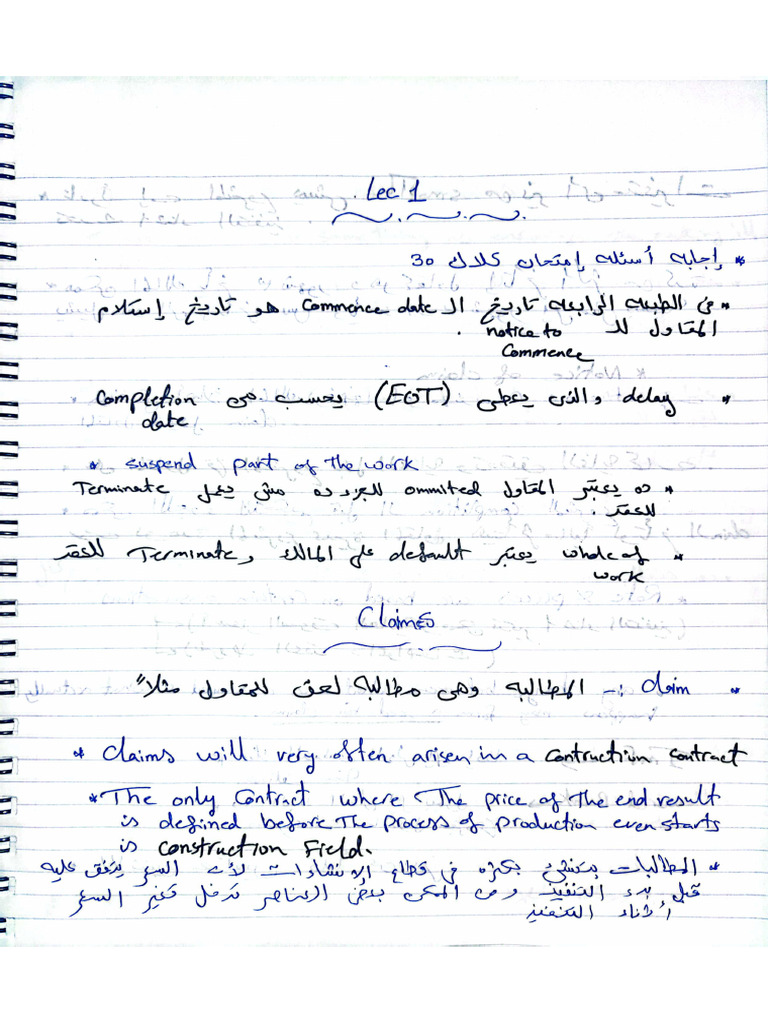 Lec 1
* إجابه أسئله إمتحان كلاك 30
* فى الطبعه الرابعه تاريخ الـ Commence date هو تاريخ إستلام
المقاول للـ notice to
Commence
* delay والذى يعطى (EOT) يحسب من Completion
date
* suspend part of the work
* ده يعتبر المقاول ommited للجزء ده مش يعمل Terminate
للعقد .
* whole of يعتبر default على المالك و Terminate للعقد
work
Claimes
* Claim :- المطالبه وهى مطالبه لحق للمقاول مثلاً
* Claims will very often arisen in a Contruction contract
* The only Contract where The price of The end result
is defined before The Process of Production even starts
is Construction Field.
* المطالبات بتنشئ بكثره فى قطاع الانشاءات لأن السعر يتفق عليه
قبل بدء التنفيذ ومن الممكن بعض العناصر تدخل تغير السعر
أثناء التنفيذ